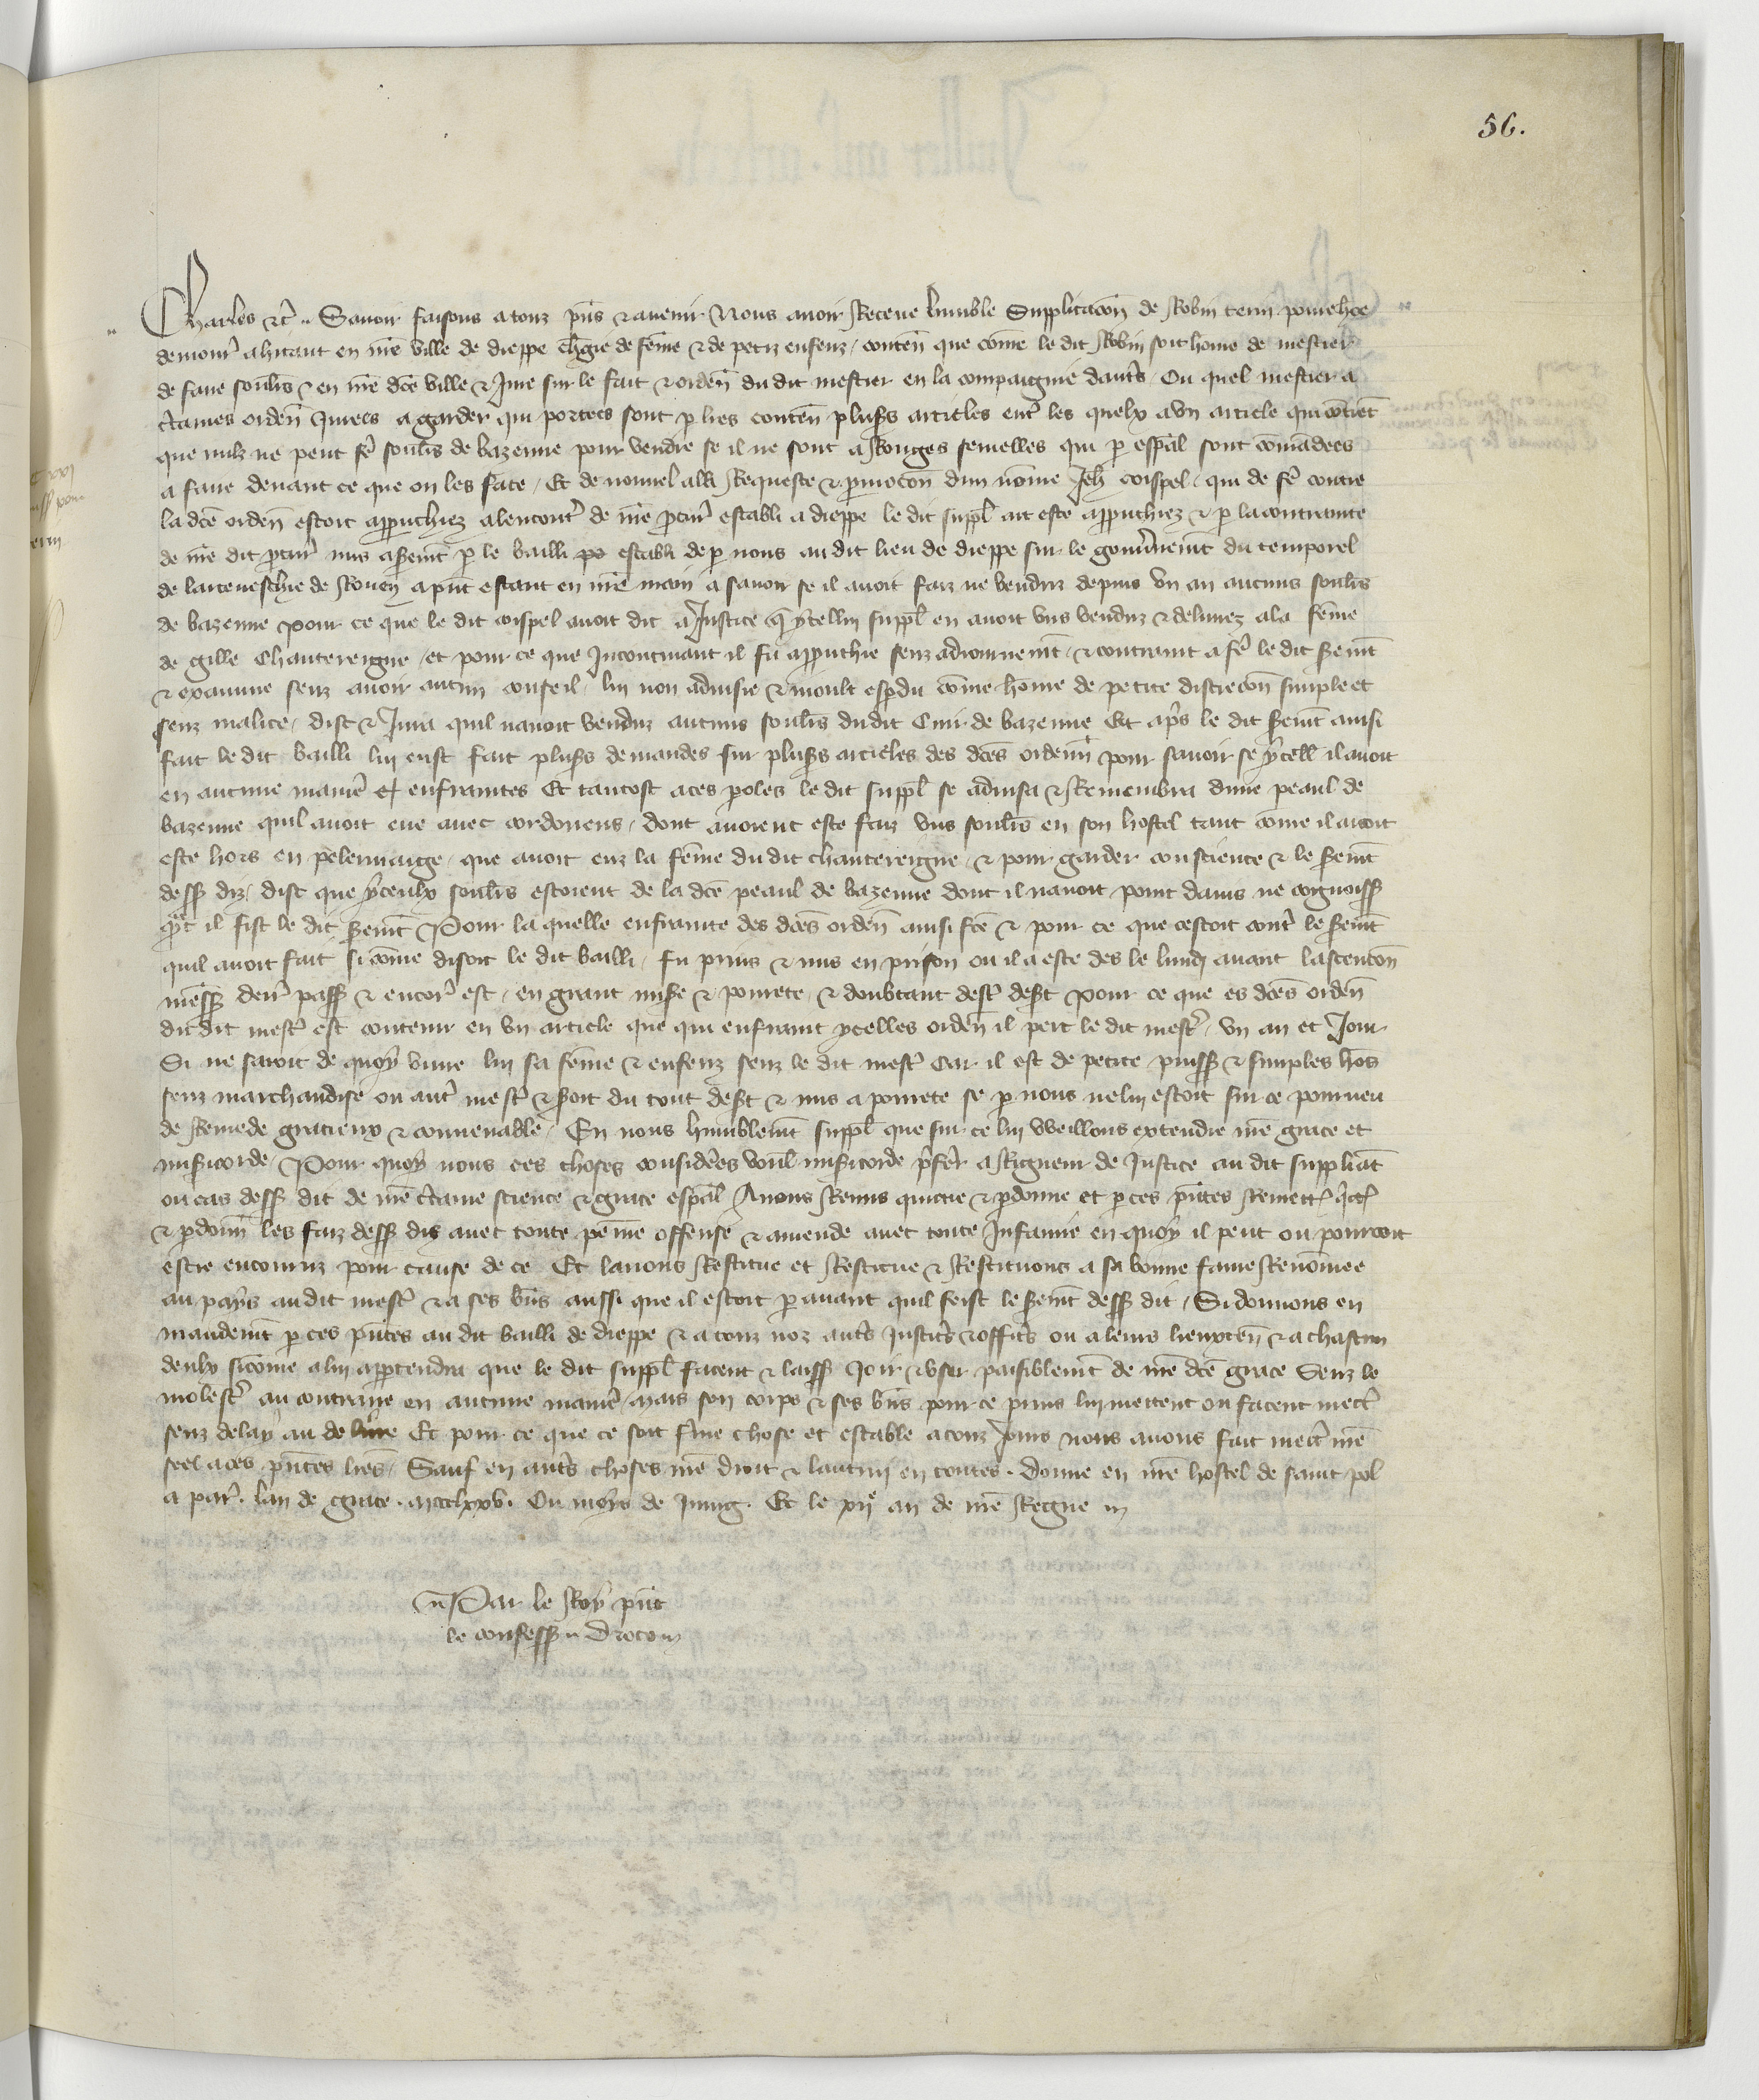 56.
Charles etc̃ Savoir faisons a touz p̃ns et avenir Nous avoir Receue lumble Supplicacõn de Robin
demour̃ abitant en nr̃e ville de dieppe ch̃gie de fẽme et de petiz enfenz / conten̄ que cõme le dit Robin soit home de mestier
de faire soul̃rs en nr̃e dc̃e ville et Jure sur le fait et orden̄ du dit mestier en la compaignie dautr̃s / Ou quel mestier a
c̃taines orden̄ Jurees a garder qui portees sont p lr̃es conten̄ plus̃s articles entr̃ les quelx a vn article qui cõtiẽt
que nulz ne peut fẽ soul̃rs de bazenne pour vendre se il ne sont a Rouges semelles qui p esp̃al sont cõmãdees
a faire devant ce que on les face / Et de nouvel a la Requeste et p̃mocõn dun nõme Jeh̃ coispel / qui de fẽ contre
la dc̃e orden̄ estoit approuchiez a lencontr̃ de nr̃e p̃cur̃ establi a dieppe le dit suppl̃ ait este approuchiez et p la contrainte
de nr̃e dit p̃cur̃ mis a serem̃t p le bailli establi de p nous au dit lieu de dieppe sur le gouv̄nem̃t du temporel
de larceveschie de Rouen a p̃nt estant en nr̃e main a savoir se il avoit faiz ne venduz depuis vn an aucuns soul̃rs
de bazenne pour ce que le dit coispel avoit dit a Justice q̃ ycellui suppl̃ en avoit vns venduz et delivrez a la fẽme
de gille Chantereigne / et pour ce que Incontinant il fu approuchie senz adiournem̃t / et contraint a fẽ le dit serem̃t
et examine senz avoir aucun conseil / lui non advisie et moult esp̃du cõme hõme de petite discrecõn simple et
senz malice / dist et Jura quil navoit venduz aucuns soul̃rs du dit Cuir de bazenne Et apr̃s le dit serem̃t ainsi
fait le dit bailli lui eust fait plus̃s demandes sur plus̃s articles des dc̃es ordenñ pour savoir se ycell̃ il avoit
en aucune manier̃ enfraintes Et tantost a ces p̃oles le dit suppl̃ se advisa et Remembra dune peaul de
bazenne quil avoit eue avec cordouens / dont avoient este faiz vns soul̃rs en son hostel tant cõme il avoit
este hors en pelerinaige / que avoit euz la fẽme du dit chantereigne / et pour garder conscience et le serem̃t
dess̃ diz / dist que yceulx soul̃rs estoient de la dc̃e peaul de bazenne dont il navoit point davis ne cognoiss̃
q̃nt il fist le dit serem̃t Pour la quelle enfrainte des dc̃es orden̄ ainsi fc̃e et pour ce que cestoit contr̃ le serem̃t
quil avoit fait si cõme disoit le dit bailli / fu prins et mis en prison ou il a este des le lundi avant lascencõn
nr̃e s̃ den̄r̃ pass̃ et encor̃ est / en grant mis̃e et povrete / et doubtant destr̃ des̃t Pour ce que es dc̃es orden̄
du dit mest̃ est contenu en vn article que qui enfraint ycelles orden̄ il pert le dit mest̃ / vn an et Jour
Si ne savoit de quoy vivre lui sa fẽme et enfenz senz le dit mest̃ Car il est de petite puiss̃ et simples hõs
senz marchandise ou autr̃ mest̃ et seroit du tout des̃t et mis a povrete se p nous ne lui estoit sur ce pourveu
de Remede gracieux et convenable / En nous humblem̃t suppl̃ que sur ce lui Vueillons extendre nr̃e grace et
mis̃icorde / Pour quoy nous ces choses considẽes voul̃ mis̃icorde p̃fẽr a Rigueur de Justice au dit suppliãt
ou cas dess̃ dit de nr̃e c̃taine science et grace esp̃al Avons Remis quictie et p̃donne et p ces p̃ntes Remett̃ q̃ctt̃
et p̃donñ les faiz dess̃ diz avec toute peñne offense et amende avec toute Infamie en quoy il peut ou pourroit
estre encouruz pour cause de ce Et lavons Restitue et Restitue et Restituons a sa bonne fame Renõmee
au pays au dit mest̃ et a ses bñs aussi que il estoit p avant quil feist le serem̃t dess̃ dit / Si donnons en
mandem̃t p ces p̃ntes au dit bailli de dieppe et a touz noz autr̃s Justic̃s et offic̃s ou a leurs lieuxten̄ et a chascun
deulx si cõme a lui app̃tendra que le dit suppl̃ facent et laiss̃ Joir et vser paisiblem̃t de nr̃e dc̃e grace Senz le
molest̃ au contraire en aucune manier̃ / mais son corps et ses bñs pour ce prins lui mettent ou facent mect̃
senz delay au delivre Et pour ce que ce soit fẽme chose et estable a touz Jours nous avons fait mect̃ nr̃e
seel a ces p̃ntes lr̃es / Sauf en autr̃s choses nr̃e droit et lautrui en toutes. Donne en nr̃e hostel de saint pol
a par̃. lan de grace. mccclxxv. Ou moys de Juing. Et le xije an de nr̃e Regne
Par le Roy p̃nt
le confess̃ Drocon